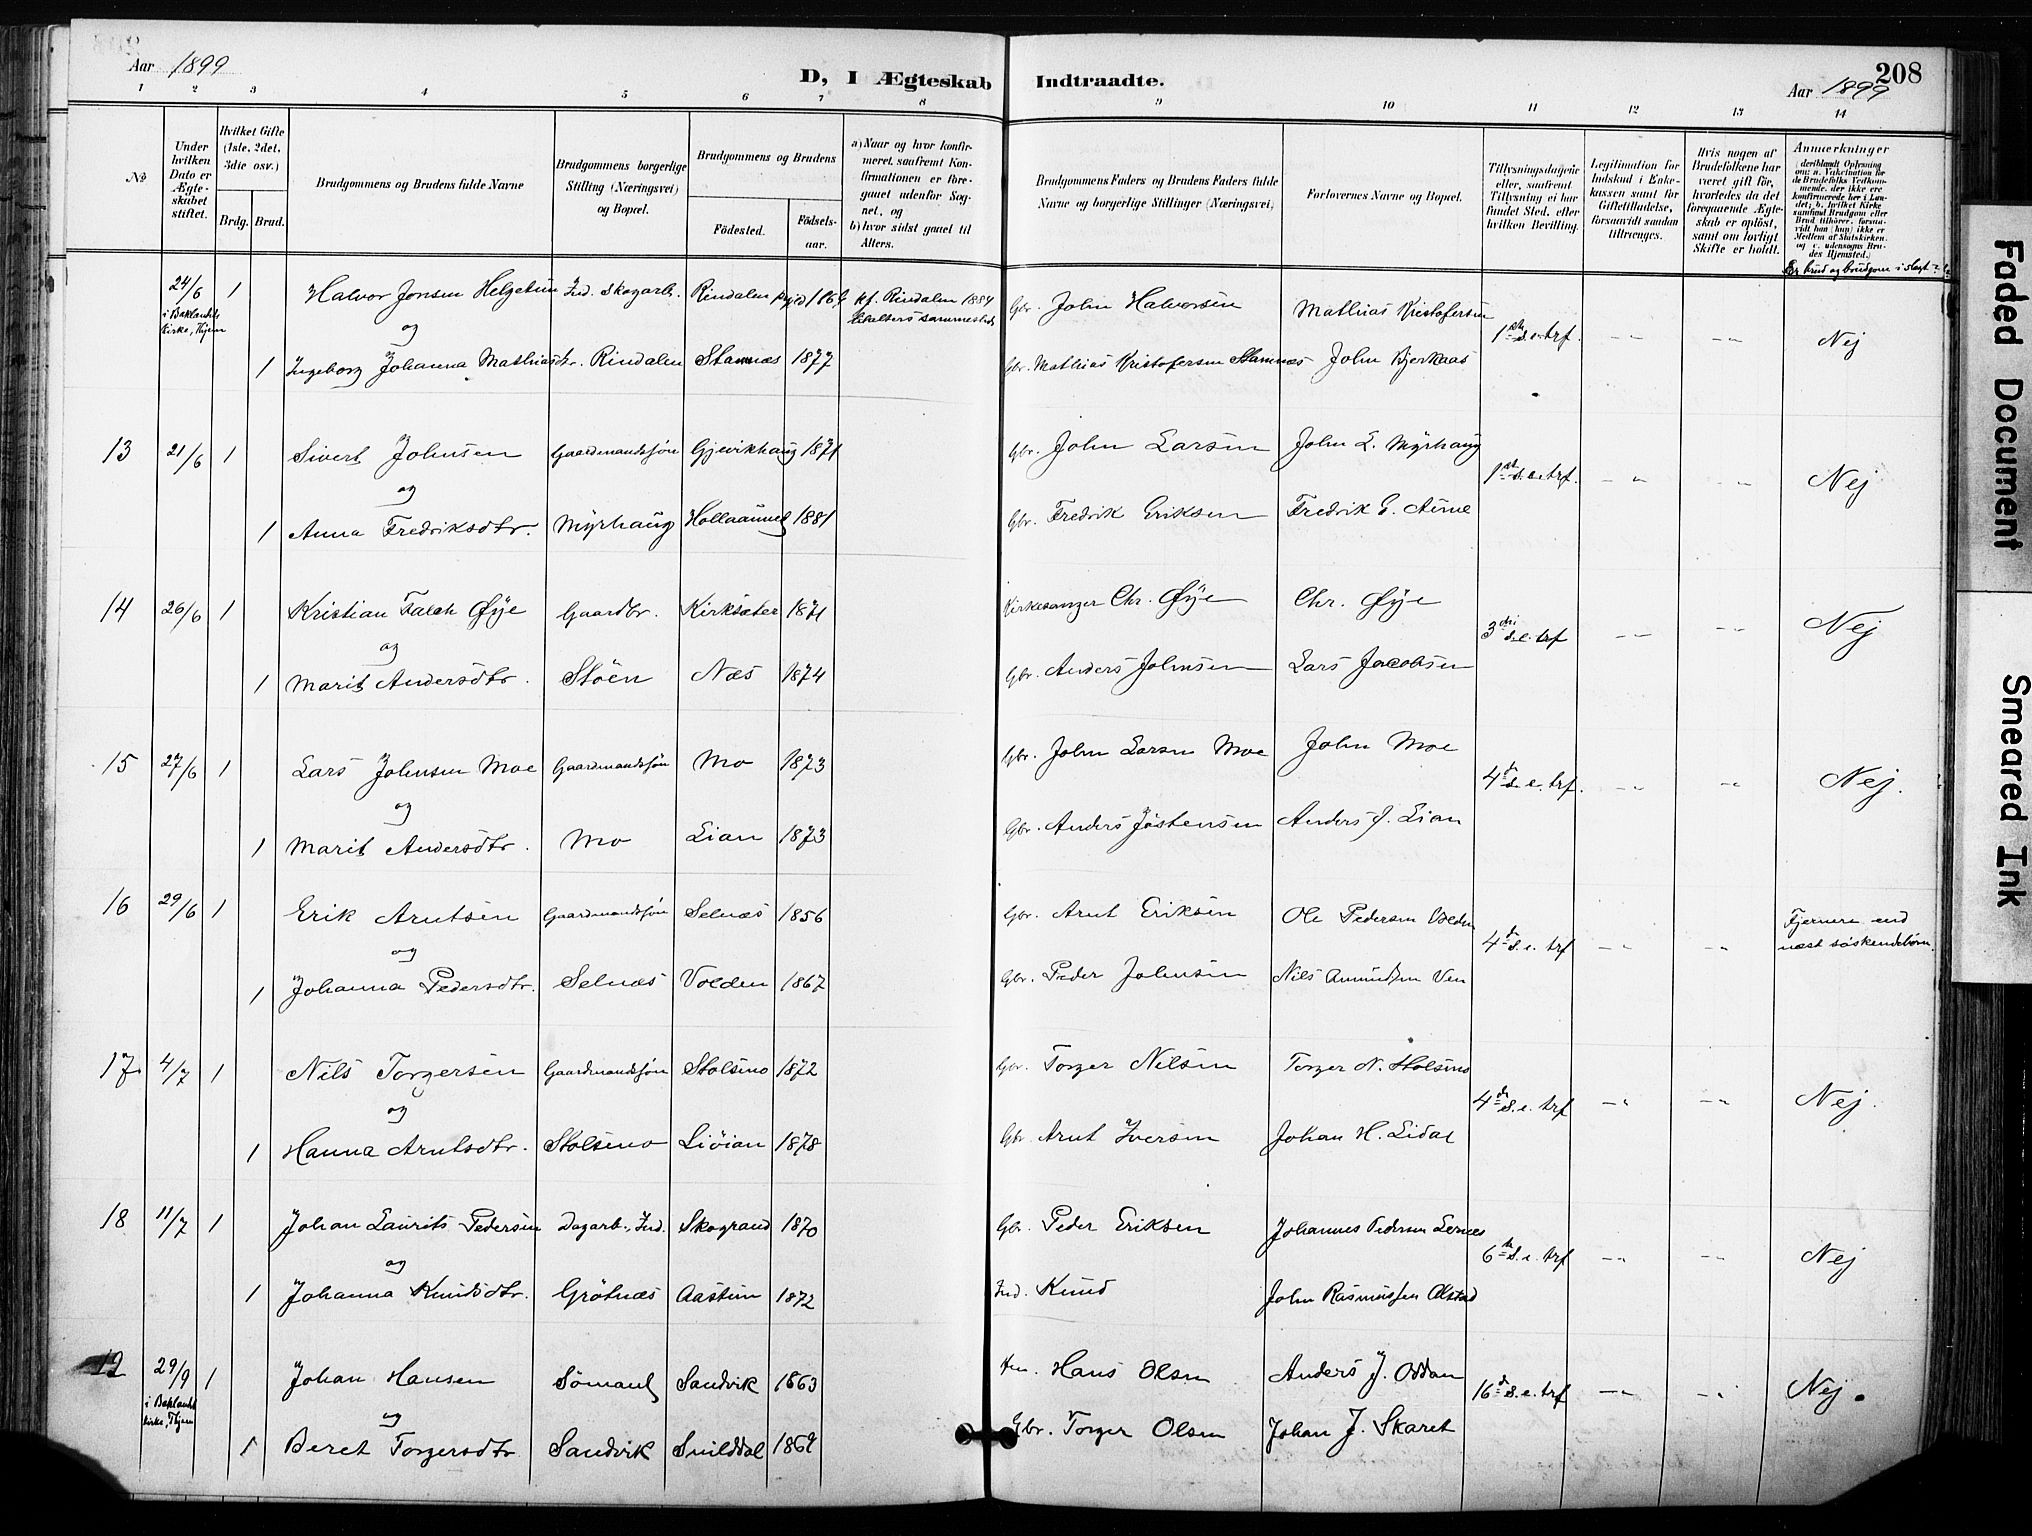 Aar 1899
D, I Ægteskab Indtraadte.
208
Aar 1899
1 2 3 4 5 6 7 8 9 10 11 12 13 14
No
Under hvilken Dato er Ægte-skabet stiftet.
Hvilket Gifte (1ste, 2det, 3die osv.)
Brdg. Brud.
Brudgommens og Brudens fulde Navne
Brudgommens borgerlige Stilling (Næringsvei) og Bopæl.
Brudgommens og Brudens
Födested.
Födsels-aar.
a) Naar og hvor konfir-meret, saafremt Kon-firmationen er fore-gaaet udenfor Sog-net, og
b) hvor sidst gaaet til Alters.
Brudgommens Faders og Brudens Faders fulde Navne og borgerlige Stillinger (Næringsvei)
Forlovernes Navne og Bopæl.
Tillysningsdagene eller, saafremt Tillysning ei har fundet Sted, efter hvilken Bevilling.
Legitimation for Indskud i Enke-kassen samt for Giftetilladelse, forsaavidt saadan tiltrænges.
Hvis nogen af Brudefolkene har været gift för, hvorledes da det foregaaende Ægte-skab er oplöst, samt om lovligt Skifte er holdt.
Anmærkninger
(deriblandt Oplysning om: a. Vakcination for de Brudefolks Vedkom-mende, der ikke ere konfirmerede her i Lan-det; b. hvilket Kirke-samfund Brudgom eller Brud tilhörer, forsaa-vidt han (hun) ikke er Medlem af Statskirken, og c. udensogns Bru-des Hjemsted.)
Er brud og brudgom i slegt?
24/6 1 Halvor Jonsen Helgetun Ind. Skogarb. Rindalen 1864 kf. Rindalen 1884 Gbr. John Halvorsen Mathias Kristofersen
i Baklandets Kirke, Thjem
og
1ste s. e. trf. Nej
1 Ingeborg Johanna Mathiasdtr. Rindalen Stamnæs 1877 Gbr. Mathias Kristofersen Stamnæs John Bjerkaas
13 21/6 1 Sivert Johnsen Gaardmandssøn Gjevikhaug 1871 Gbr. John Larsen John L. Myrhaug
og
1ste s. e. trf. Nej
1 Anna Fredriksdtr. Myrhaug 1881 Gbr. Fredrik Eriksen Fredrik E. Aune
14 26/6 1 Kristian Falch Øye Gaardbr. Kirksæter 1871 Kirkesanger Chr. Øye Chr. Øye
og
3die s. e. trf Nej
1 Marit Andersdtr. Støen Næs 1874 Gbr. Anders Johnsen Lars Jacobsen
15 27/6 1 Lars Johnsen Moe Gaardmandssøn Mo 1873 Gbr. John Larsen Moe John Moe
og
4de s. e. trf. Nej.
1 Marit Andersdtr. Mo Lian 1873 Gbr. Anders Jostensen Anders J. Lian
16 29/6 1 Erik Arntsen Gaardmandssøn Selnæs 1856 Gbr. Arnt Eriksen Ole Pedersen Volden
og
4de s. e. trf Fjernere end næst søskendebørn.
1 Johanna Pedersdtr. Selnæs Volden 1867 Gbr. Peder Johnsen Nils Amundsen Ven
17 4/7 1 Nils Torgersen Gaardmandssøn Stolsmo 1872 Gbr. Torger Nilsen Torger N. Stolsmo
og
4de s. e. trf Nej.
1 Hanna Arntsdtr. Stolsmo Liøian 1878 Gbr. Arnt Iversen Johan H. Lidal
18 11/7 1 Johan Laurits Pedersen Dagarb., Ind. Skogrand 1870 Gbr. Peder Eriksen Johannes Pedersen
og
6te s. e. trf Nej
1 Johanna Knudsdtr. Grötnæs Aastun 1872 Ind. Knud John Rasmussen Olstad
19 29/9 1 Johan Hansen Sømand Sandvik 1863 Hans Olsen Anders J. Oddan
i Baklandets kirke, Thjem
og
16de s. e. trf Nej.
1 Beret Torgersdtr. Sandvik Snilddal 1869 Gbr. Torger Olsen Johan J. Skaret
Faded Document
Smeared Ink